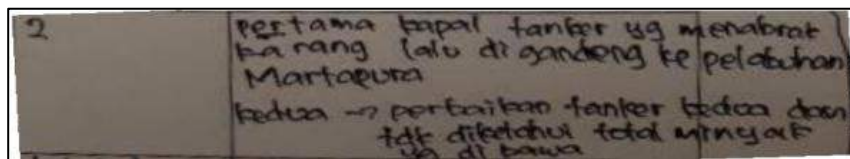 2 pertama kapal tanker yg menabrak
karang lalu di gandeng ke pelabuhan
Martapura
kedua → perbaikan tanker kedua dan
tdk diketahui total minyak
yg di bawa